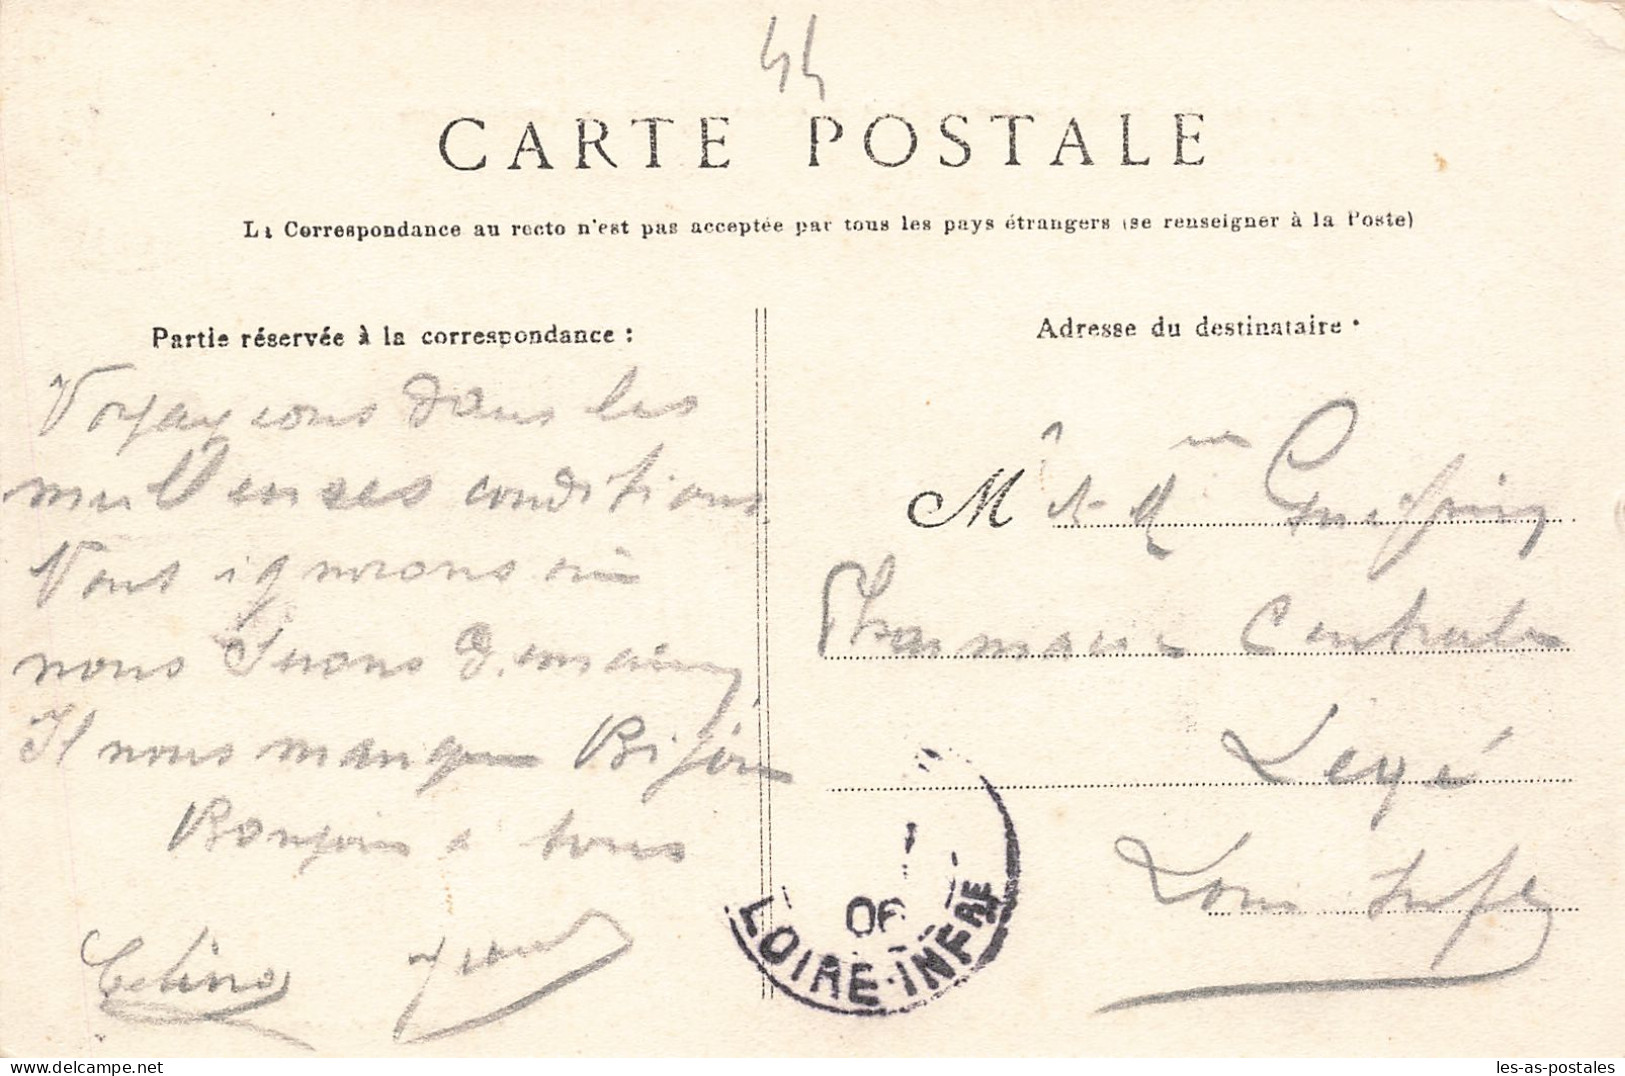 44
CARTE POSTALE
La Correspondance au recto n'est pas acceptée par tous les pays étrangers (se renseigner à la Poste)
Partie réservée à la correspondance :
Voyageons dans les
meilleures conditions
Nous ignorons où
nous serons demain
Il nous manque Bijou
Bonjour à tous
Célina
Adresse du destinataire :
M r & Mme
Pharmacie Centrale
Legé
Loire Infre
06
LOIRE-INFRE
les-as-postales